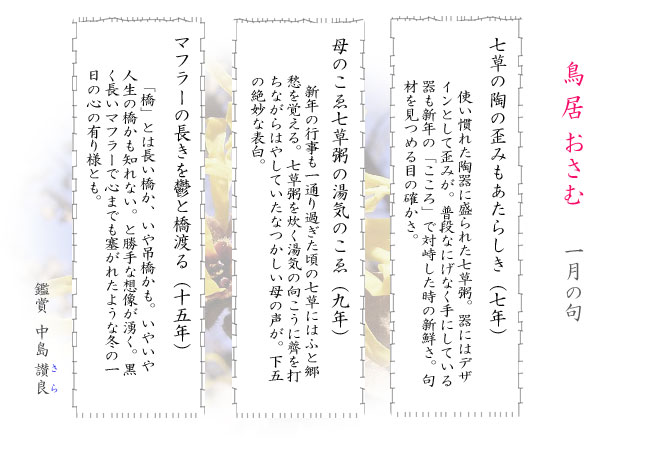 鳥居おさむ　一月の句
七草の陶の歪みもあたらしき（七年）
使い慣れた陶器に盛られた七草粥。器にはデザ
インとして歪みが。普段なにげなく手にしている
器も新年の「こころ」で対峙した時の新鮮さ。句
材を見つめる目の確かさ。
母のこゑ七草粥の湯気のこゑ（九年）
新年の行事も一通り過ぎた頃の七草にはふと郷
愁を覚える。七草粥を炊く湯気の向こうに薺を打
ちながらはやしていたなつかしい母の声が。下五
の絶妙な表白。
マフラーの長きを鬱と橋渡る（十五年）
「橋」とは長い橋か、いや吊橋かも。いやいや
人生の橋かも知れない。と勝手な想像が湧く。黒
く長いマフラーで心までも塞がれたような冬の一
日の心の有り様とも。
鑑賞　中島讃良
さら